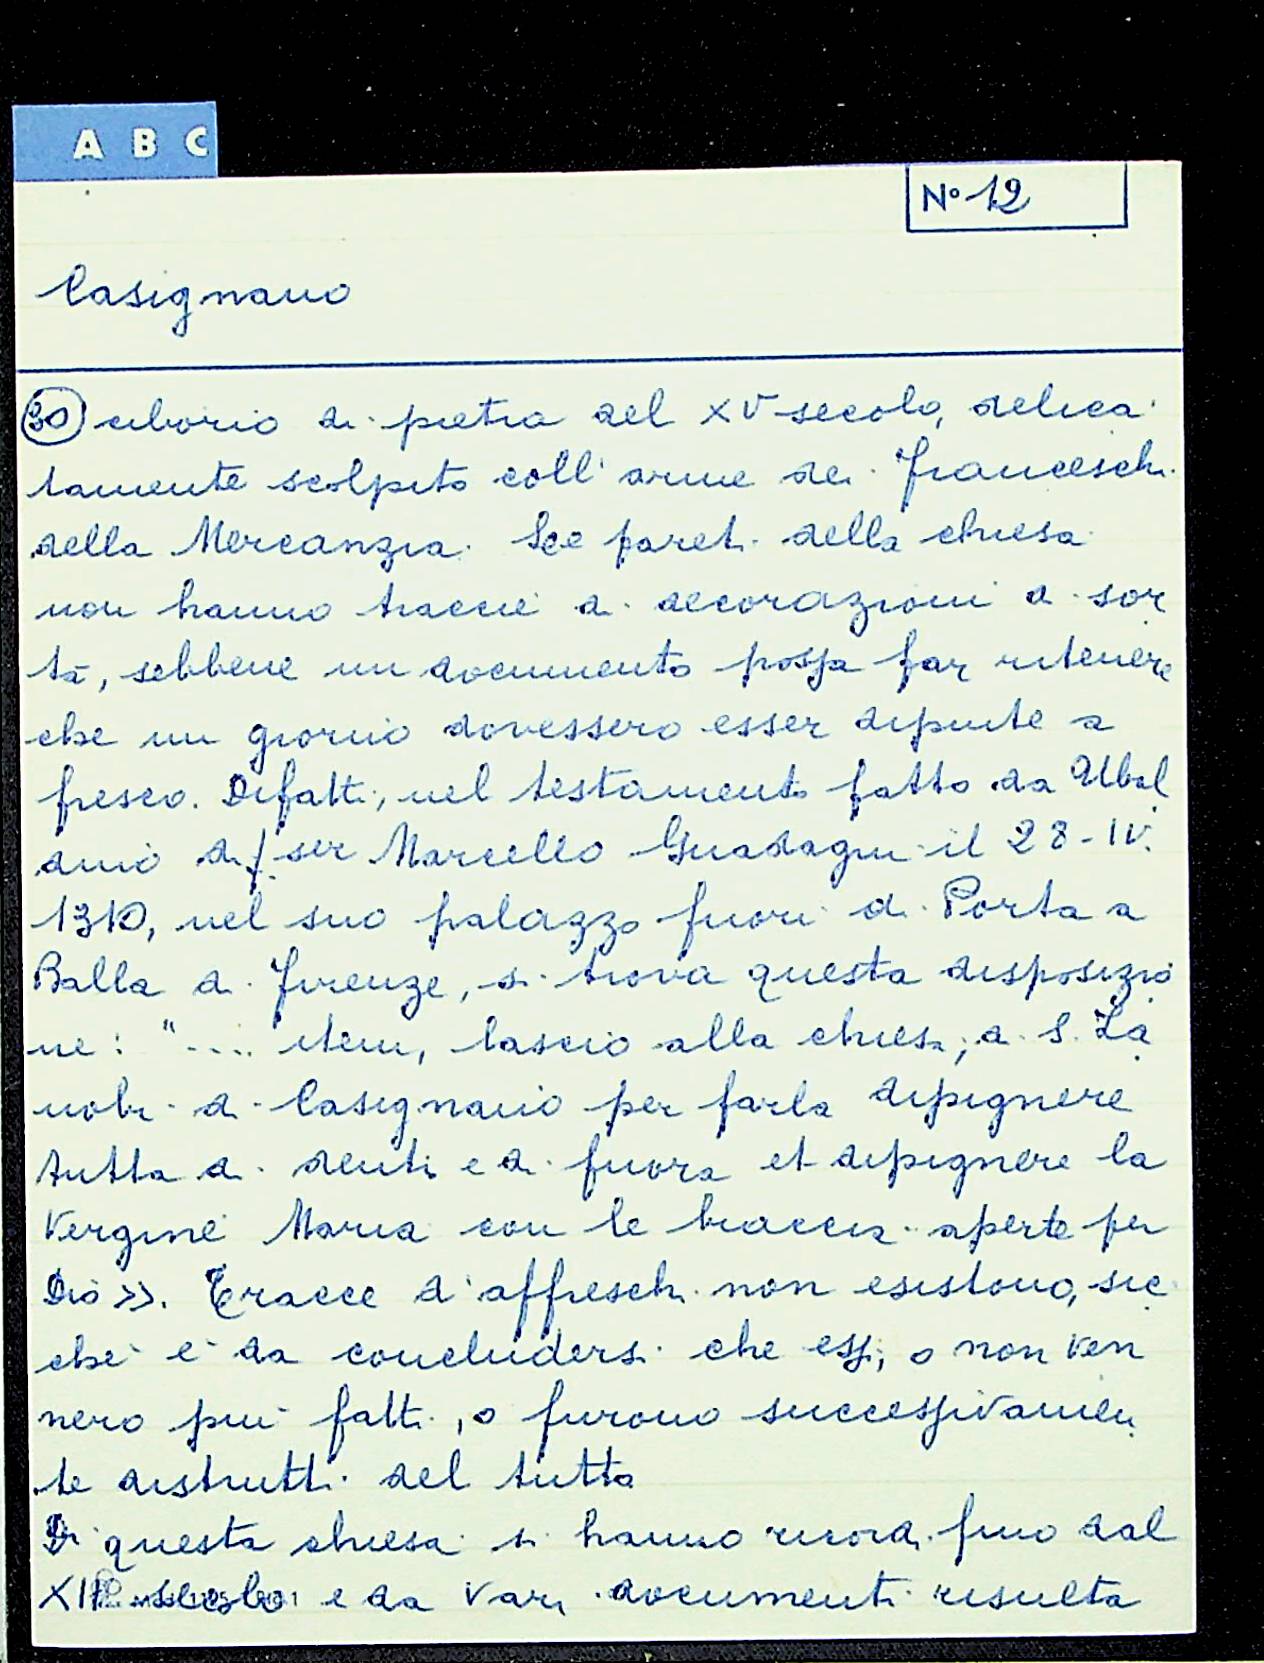 A B C
N° 12
Casignano
30 ciborio di pietra del XV secolo, delica
tamente scolpito coll'arme dei Franceschi
della Mercanzia. Le pareti della chiesa
non hanno traccie di decorazioni di sor
ta, sebbene un documento possa far ritenere
che un giorno dovessero esser dipinte a
fresco. Difatti, nel testamento fatto da Ubal
dino di ser Marcello Guadagni il 28-IV.
1310, nel suo palazzo fuori di Porta a
Balla di Firenze, si trova questa disposizio
ne: ".... item, lascio alla chiesa di S. Za
nobi di Casignano per farla dipignere
tutta di denti e di fuora et dipignere la
Vergine Maria con le braccia aperte per
Dio». Tracce d'affreschi non esistono, sic
chè è da concludersi che essi, o non ven
nero più fatti, o furono successivamen
te distrutti del tutto
Di questa chiesa si hanno ricordi fino dal
secolo e da vari documenti risulta